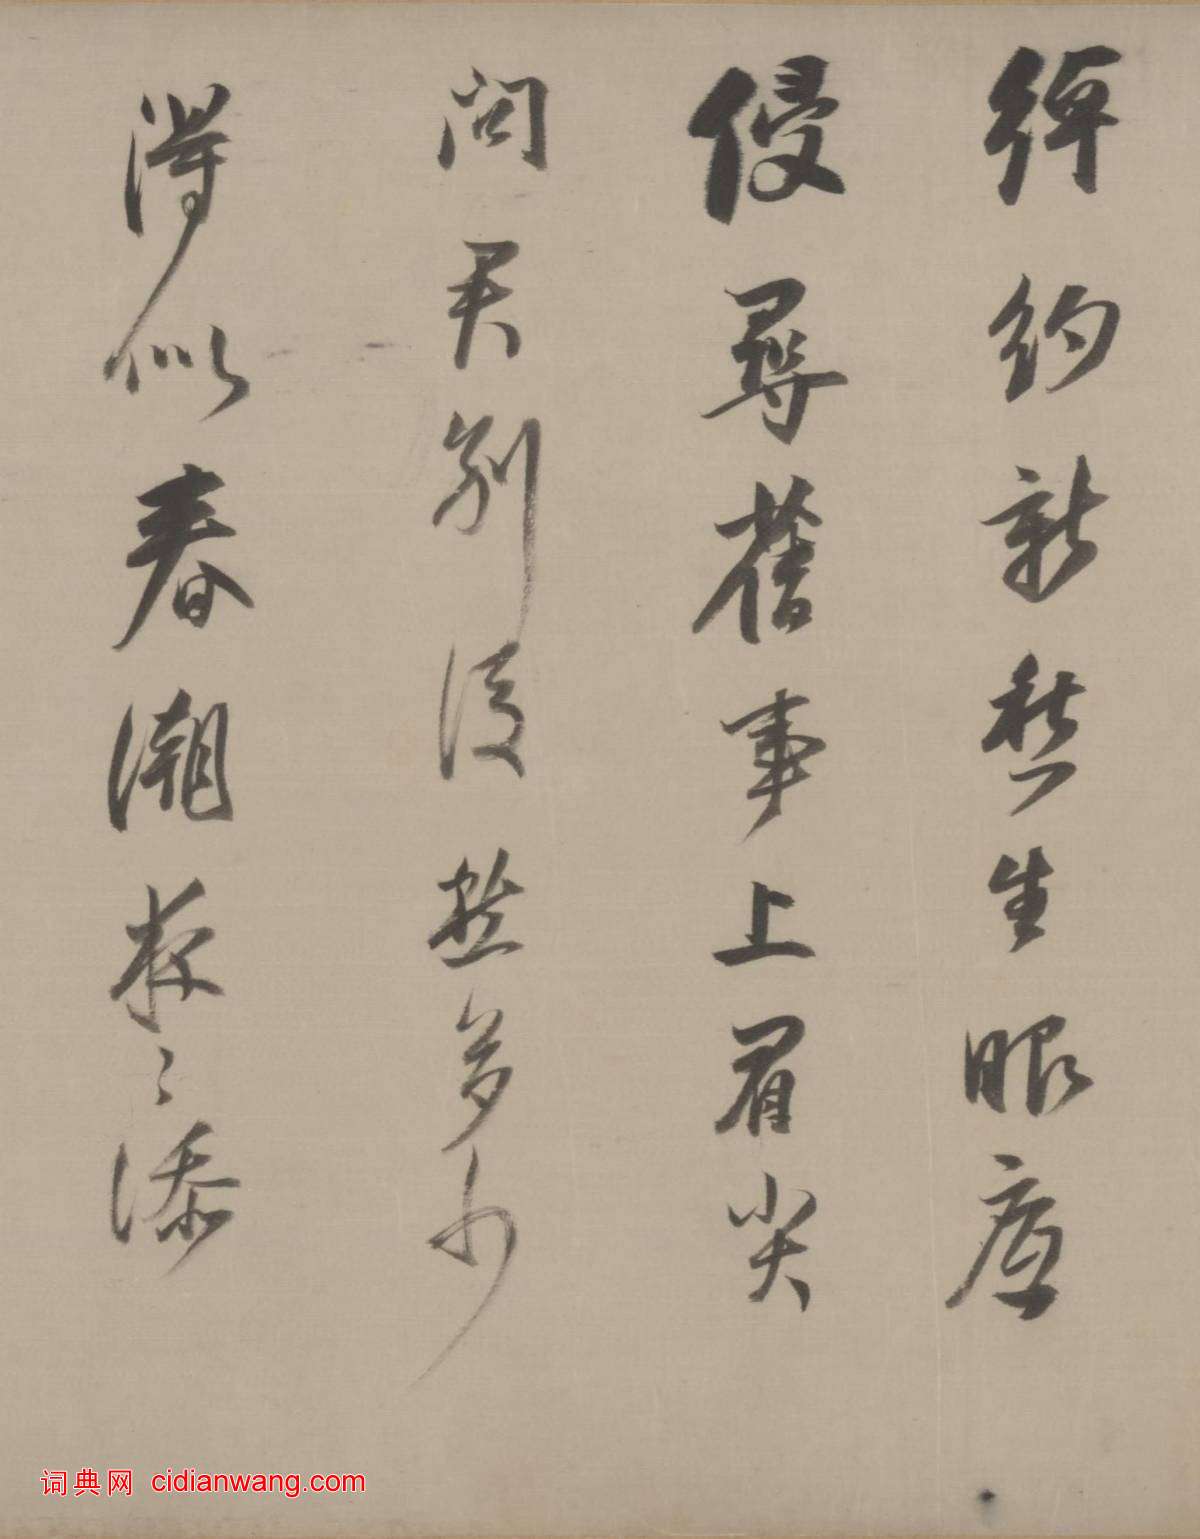 綽約新愁生眼底
侵尋舊事上眉尖
問君別後愁多少
得似春潮夜〻添
词典网 cidianwang.com